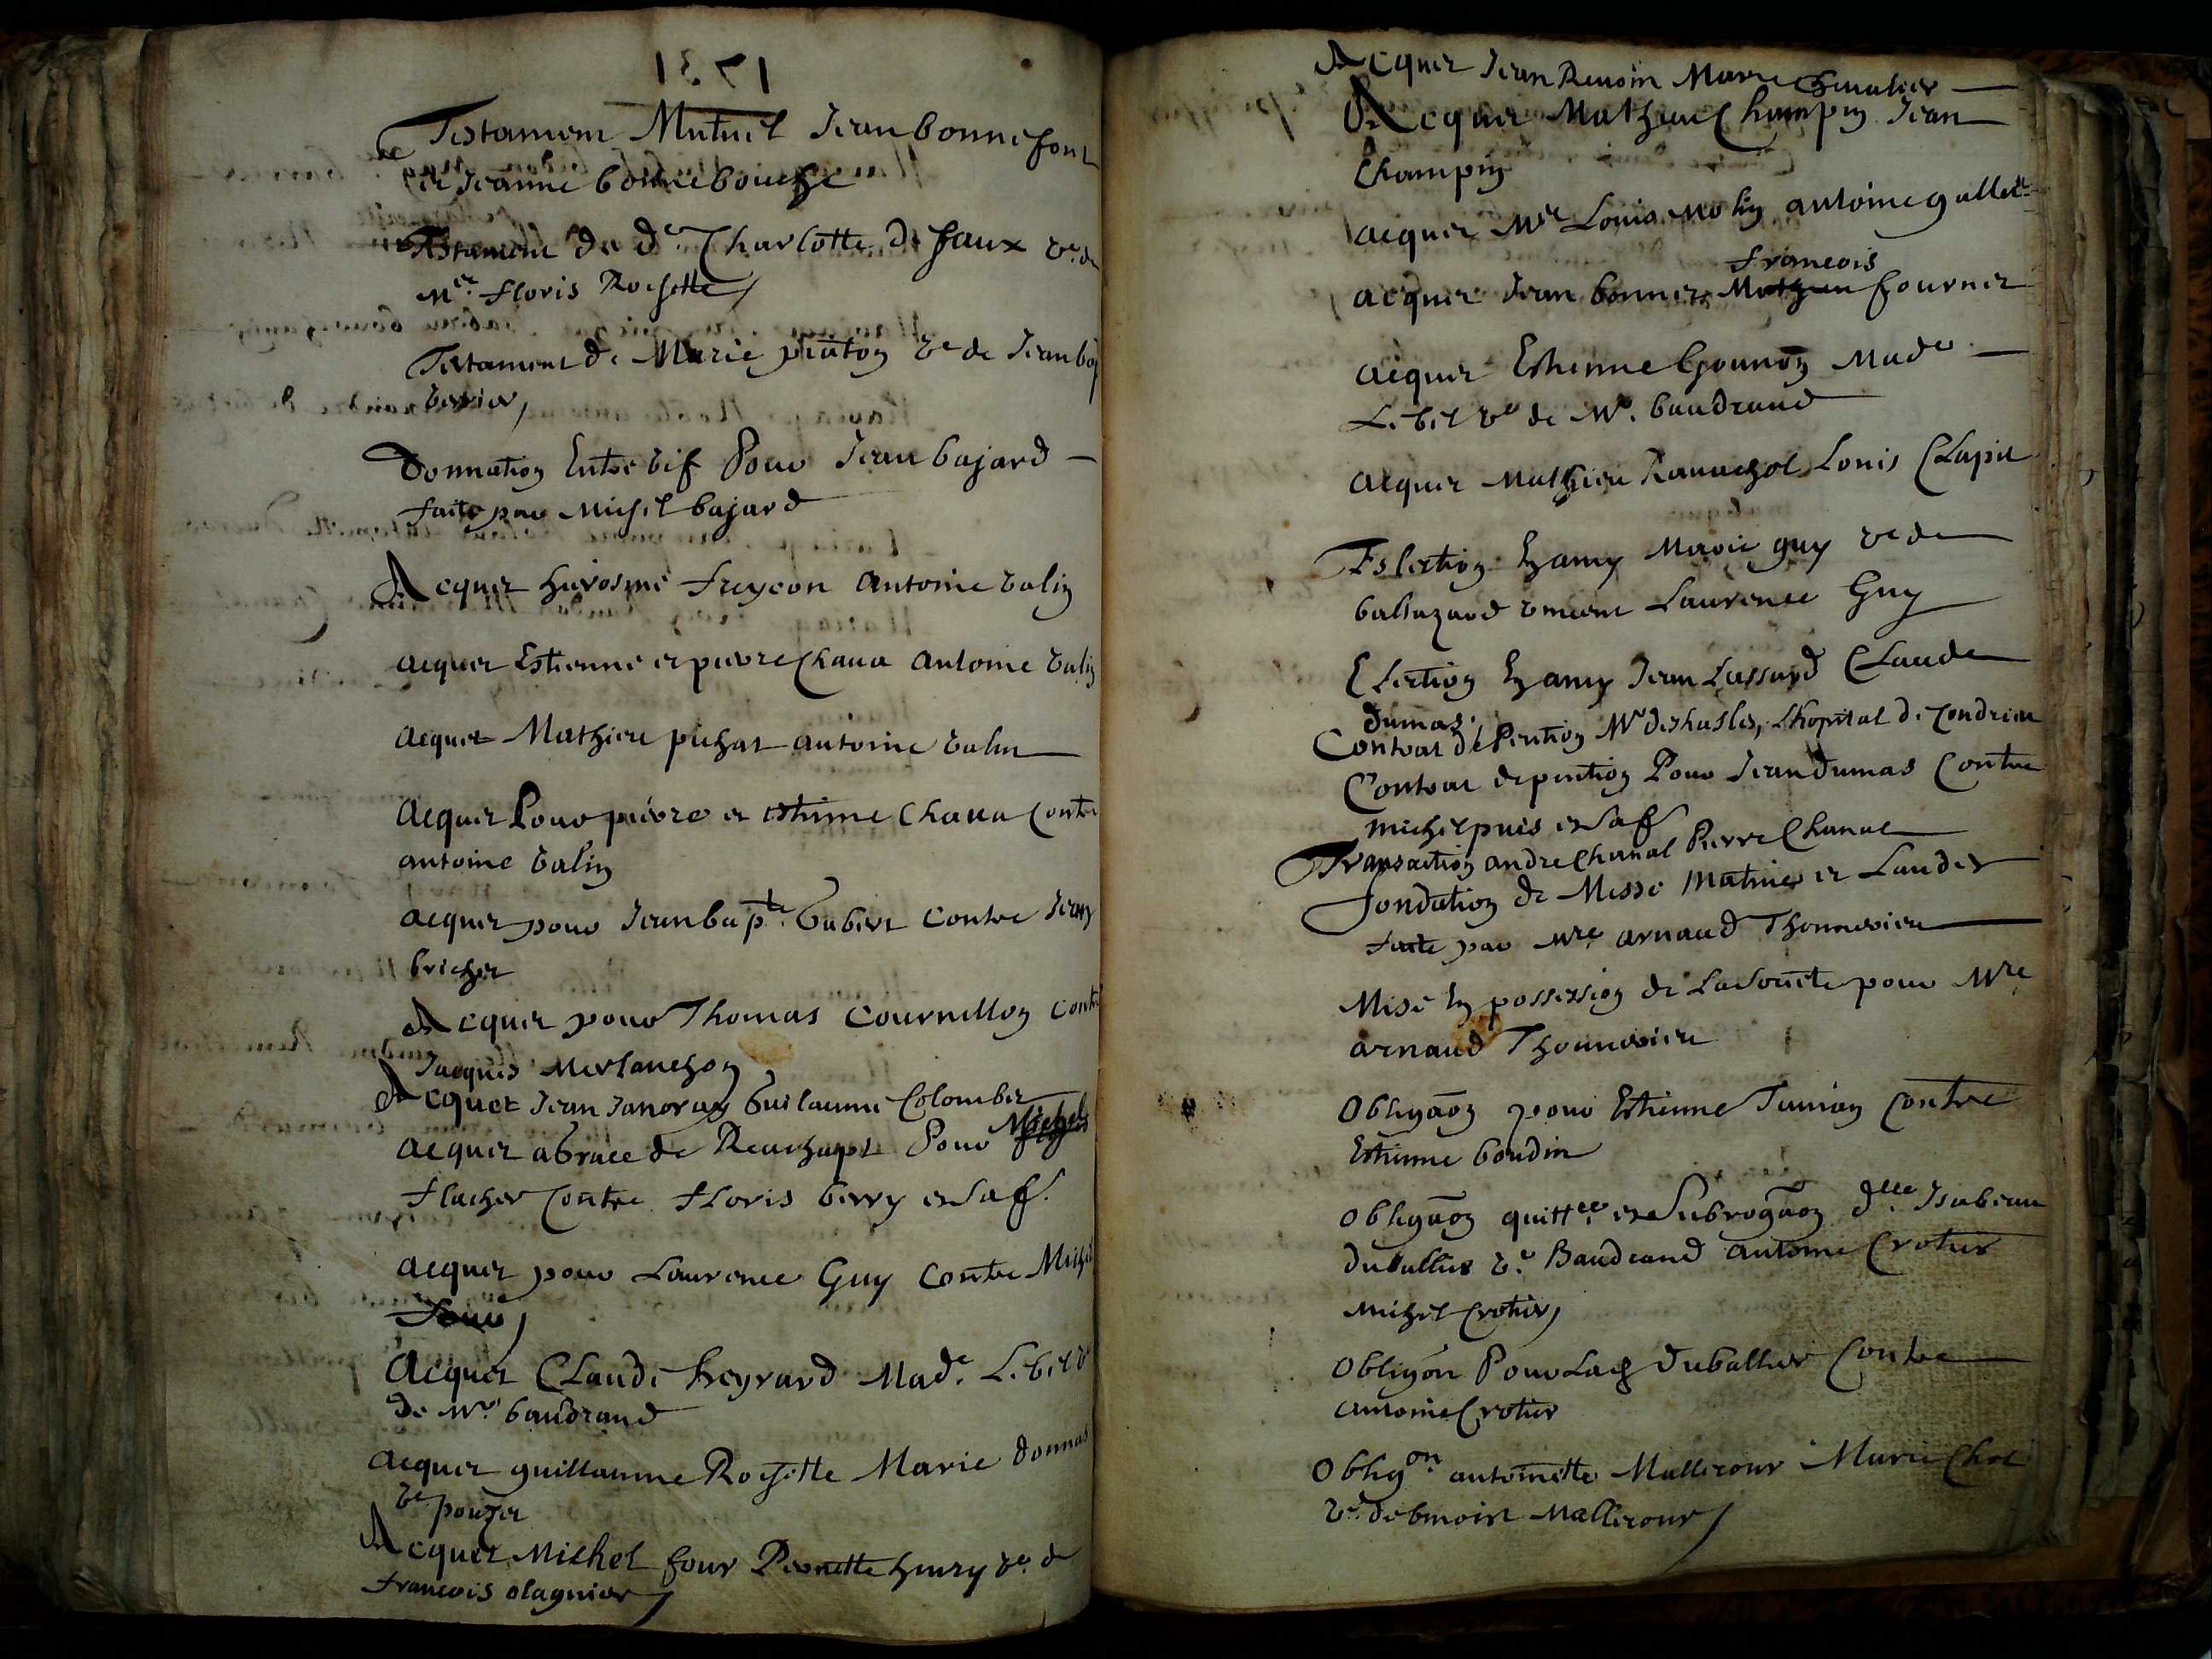 1731
Testament Mutuel Jean bonnefont
et Jeanne bonnebouche
Testament de de. Charlotte de faux ve. de
Mre floris Rochette
Testament de Marie piaton ve de Jean
berrier
Donnation Entre vif Pour Jean bajard
faite par Michel bajard
Acquet hierosme freycon antoine valin
acquet Estienne et pierre Chava antoine valin
acquet Mathieu pichat antoine valin
acquet Pour pierre et estienne Chava Contre
antoine valin
acquet pour Jean bapte. Gabert contre Jean
brichet
Acquet pour Thomas Cournillon Contre
Jacques Merlanchon
Acquet Jean Janoray Guilaume Colombet
acquet a Grace de Reachapt Pour Michel
flacher Contre floris verry et sa ff.
acquet pour Laurence Guy Contre Michel
four
acquet Claude heyrard Made. Lebel ve
de Mr. baudrand
acquet guillaume Rochette Marie donnas
ve pouzet
Acquet Michel four Pierrette henry ve. de
francois olagnier
Acquet Jean Renoin Marie Chevalier
Acquet Mathieu Champin Jean
Champin
acquet Mre Louis Molin antoine gallet
francois
acquet Jean bonnet Mathieu fournet
acquet Estienne Gounon Made
Lebel ve de Mr. baudrand
acquet Mathieu Ravachol Louis Clapit
Eslection En amy Marie guy ve de
baltazard vincent Laurence Guy
Election En amy Jean Lassard Claude
dumas
Contrat de Pention Mr deshasles, Lhopital de Condrieu
Contrat de pention Pour Jean dumas Contre
michel puis et sa ff
Transaction andre Chanal Pierre Chanal
fondation de Messe Matines et Laudes
faite par Mre arnaud Thonnerieu
Mise En possession de La Société pour Mre
arnaud Thonnerieu
obligaon pour Estienne Junian Contre
Estienne boudin
obligaon quittce et Subrogaon dlle. Isabeau
duvallier ve. Baudrand antoine Crotier
michel Crotier
obligon Pour Lad duvallier Contre
antoine Crotier
obligon antoinette Mallecour Marie Chol
ve. de bnoist Mallecour